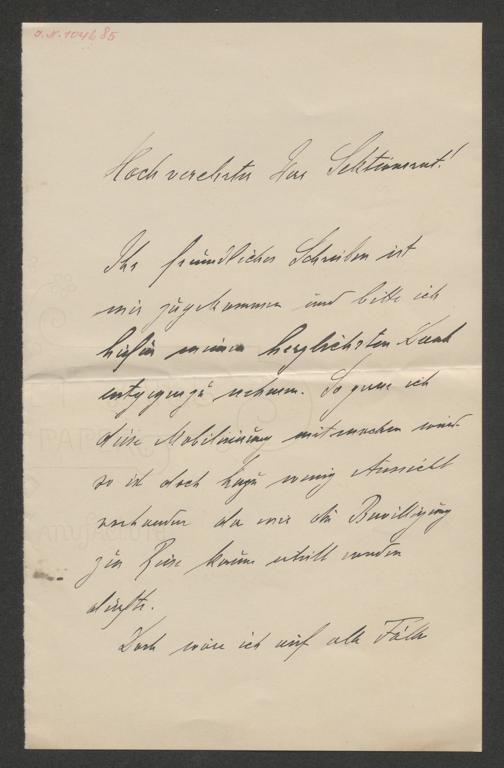 J.N. 104685
Hochverehrter Herr Sektionsrat!
Ihr freundliches Schreiben ist
mir zugekommen und bitte ich
hiefür meinen herzlichsten Dank
entgegenzunehmen. So gerne ich
diese Mobilisirung mitmachen würde
so ist doch hiezu wenig Aussicht
vorhanden da mir die Bewilligung
zur Reise kaum erteilt werden
dürfte.
Doch wäre ich auf alle Fälle